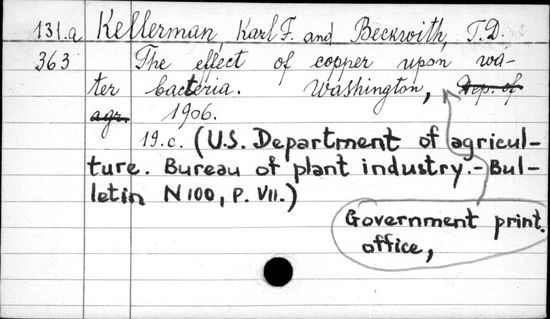 131.a Kellerman, Karl F. and Beckwith, T.D.
363 The effect of copper upon wa-
ter bacteria. Washington, Dep. of
agr. 1906.
19.c. (U.S. Department of agricul-
ture. Bureau of plant industry.-Bul-
letin N100, P. VII.)
Government print.
office,